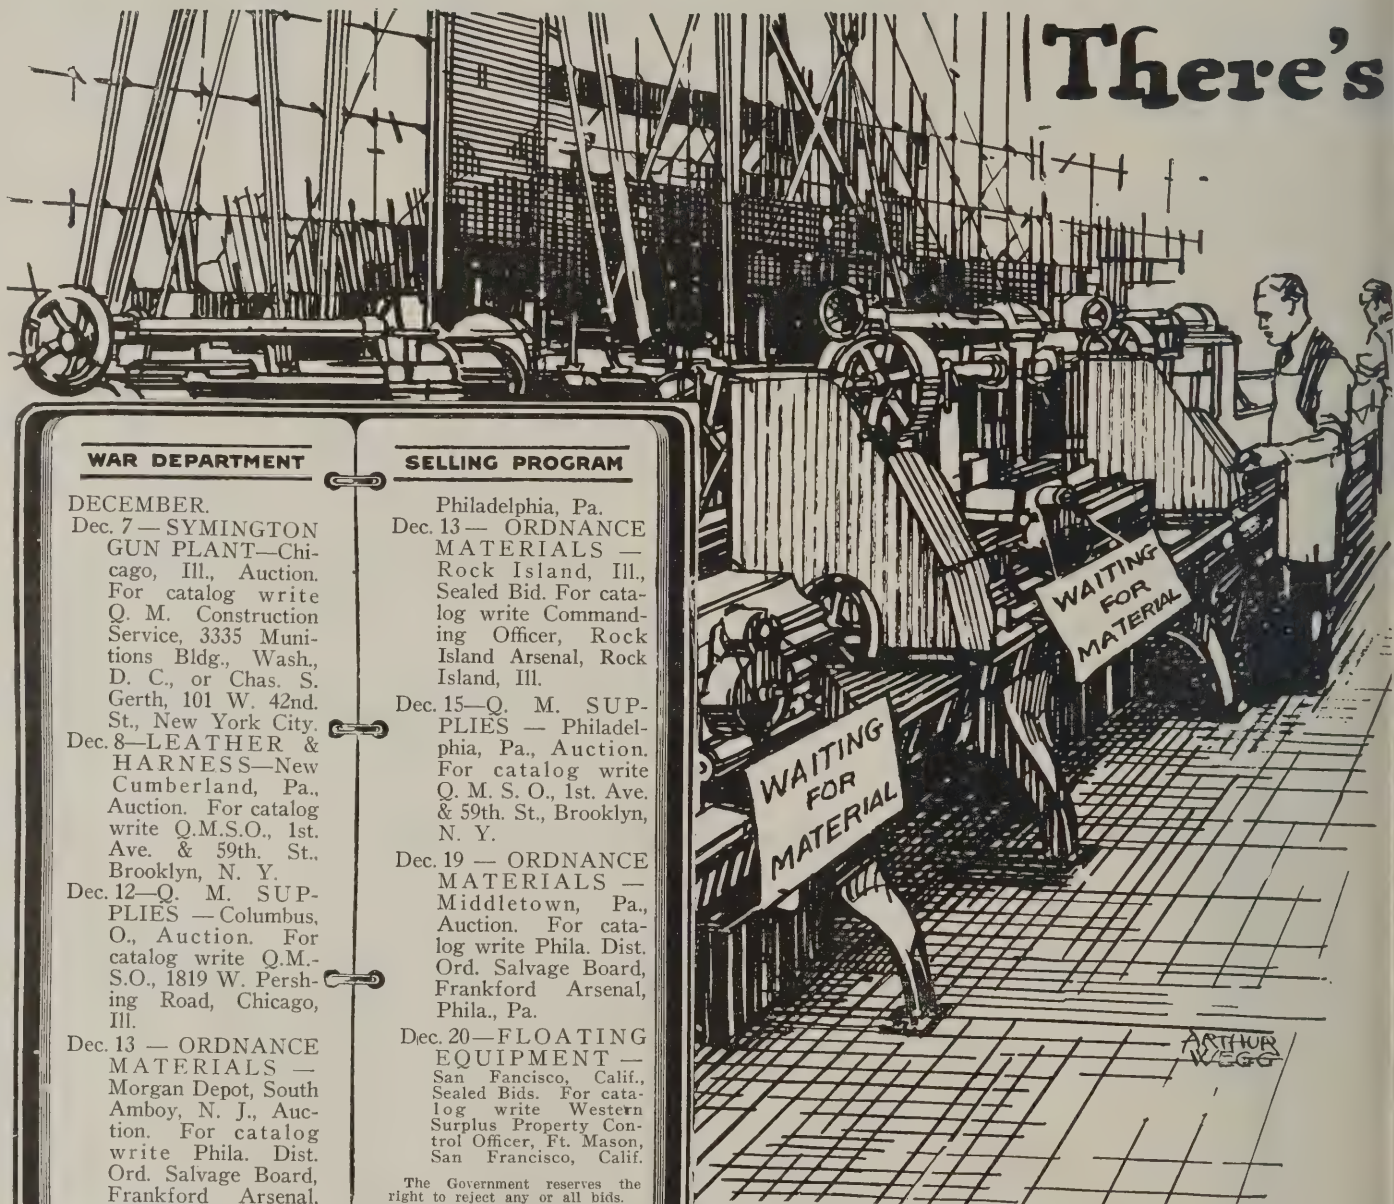 There's
WAR DEPARTMENT
DECEMBER.
Dec. 7 — SYMINGTON
GUN PLANT—Chi-
cago, Ill., Auction.
For catalog write
Q. M. Construction
Service, 3335 Muni-
tions Bldg., Wash.,
D. C., or Chas. S.
Gerth, 101 W. 42nd.
St., New York City.
Dec. 8—LEATHER &
HARNESS—New
Cumberland, Pa.,
Auction. For catalog
write Q.M.S.O., 1st.
Ave. & 59th. St.,
Brooklyn, N. Y.
Dec. 12—Q. M. SUP-
PLIES — Columbus,
O., Auction. For
catalog write Q.M.-
S.O., 1819 W. Persh-
ing Road, Chicago,
Ill.
Dec. 13 — ORDNANCE
MATERIALS —
Morgan Depot, South
Amboy, N. J., Auc-
tion. For catalog
write Phila. Dist.
Ord. Salvage Board,
Frankford Arsenal,
SELLING PROGRAM
Philadelphia, Pa.
Dec. 13 — ORDNANCE
MATERIALS —
Rock Island, Ill.,
Sealed Bid. For cata-
log write Command-
ing Officer, Rock
Island Arsenal, Rock
Island, Ill.
Dec. 15—Q. M. SUP-
PLIES — Philadel-
phia, Pa., Auction.
For catalog write
Q. M. S. O., 1st. Ave.
& 59th. St., Brooklyn,
N. Y.
Dec. 19 — ORDNANCE
MATERIALS —
Middletown, Pa.,
Auction. For cata-
log write Phila. Dist.
Ord. Salvage Board,
Frankford Arsenal,
Phila., Pa.
Dec. 20—FLOATING
EQUIPMENT —
San Fancisco, Calif.,
Sealed Bids. For cata-
log write Western
Surplus Property Con-
trol Officer, Ft. Mason,
San Francisco, Calif.
The Government reserves the
right to reject any or all bids.
WAITING
FOR
MATERIAL
WAITING
FOR
MATERIAL
ARTHUR
WEGG